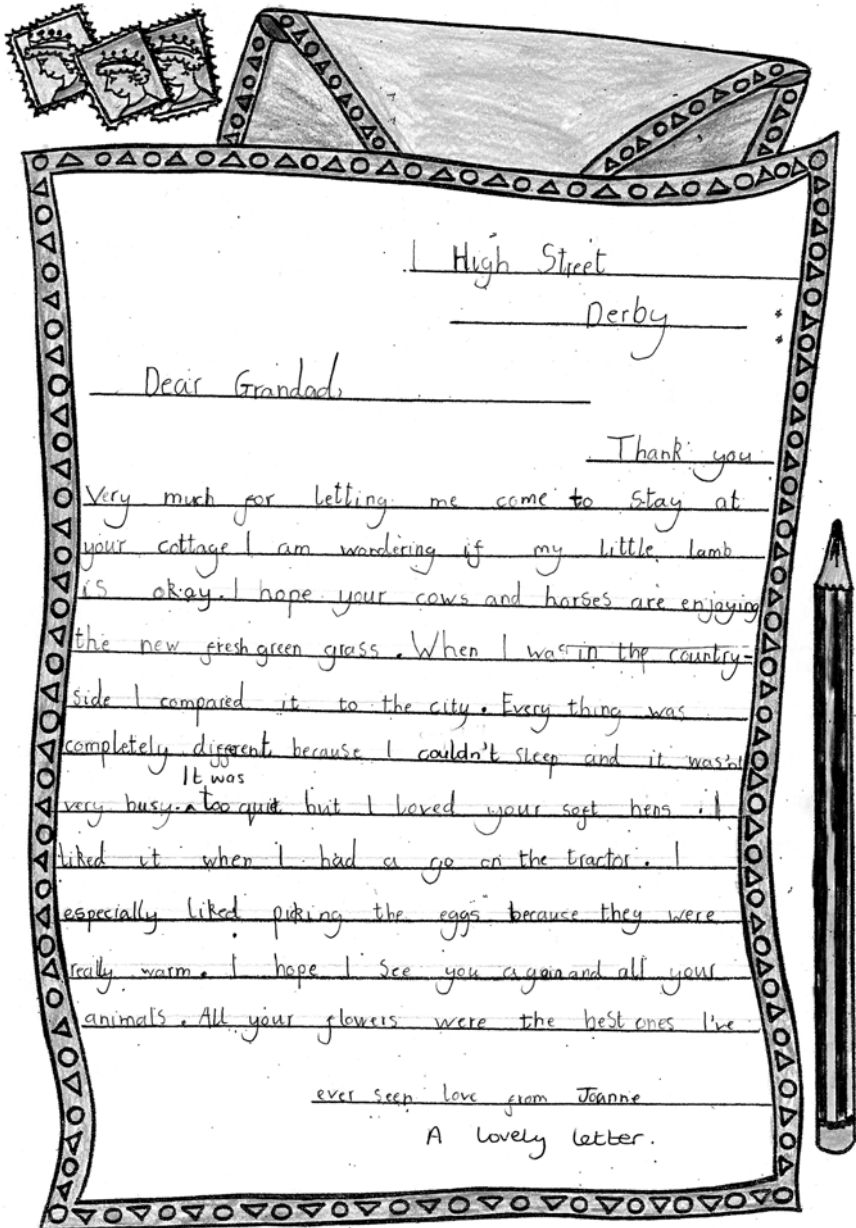 1 High Street
Derby
Dear Grandad,
Thank you
Very much for letting me come to stay at
your cottage I am wondering if my little lamb
is okay. I hope your cows and horses are enjoying
the new fresh green grass. When I was in the country-
side I compared it to the city. Every thing was
completely different because I couldn't sleep and it was'nt
It was
very busy. ^ too quit but I loved your soft hens. I
liked it when I had a go on the tractor. I
especially liked piking the eggs because they were
really warm. I hope I see you again and all your
animals. All your flowers were the best ones I've
ever seen love from Joanne
A lovely letter.